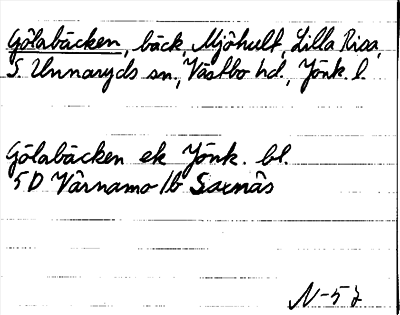 Gölabäcken, bäck, Mjöhult, Lilla Risa,
S. Unnaryds sn., Västbo hd., Jönk. l.
Gölabäcken ek Jönk. bl.
5D Värnamo 1b Saxnäs
N-57